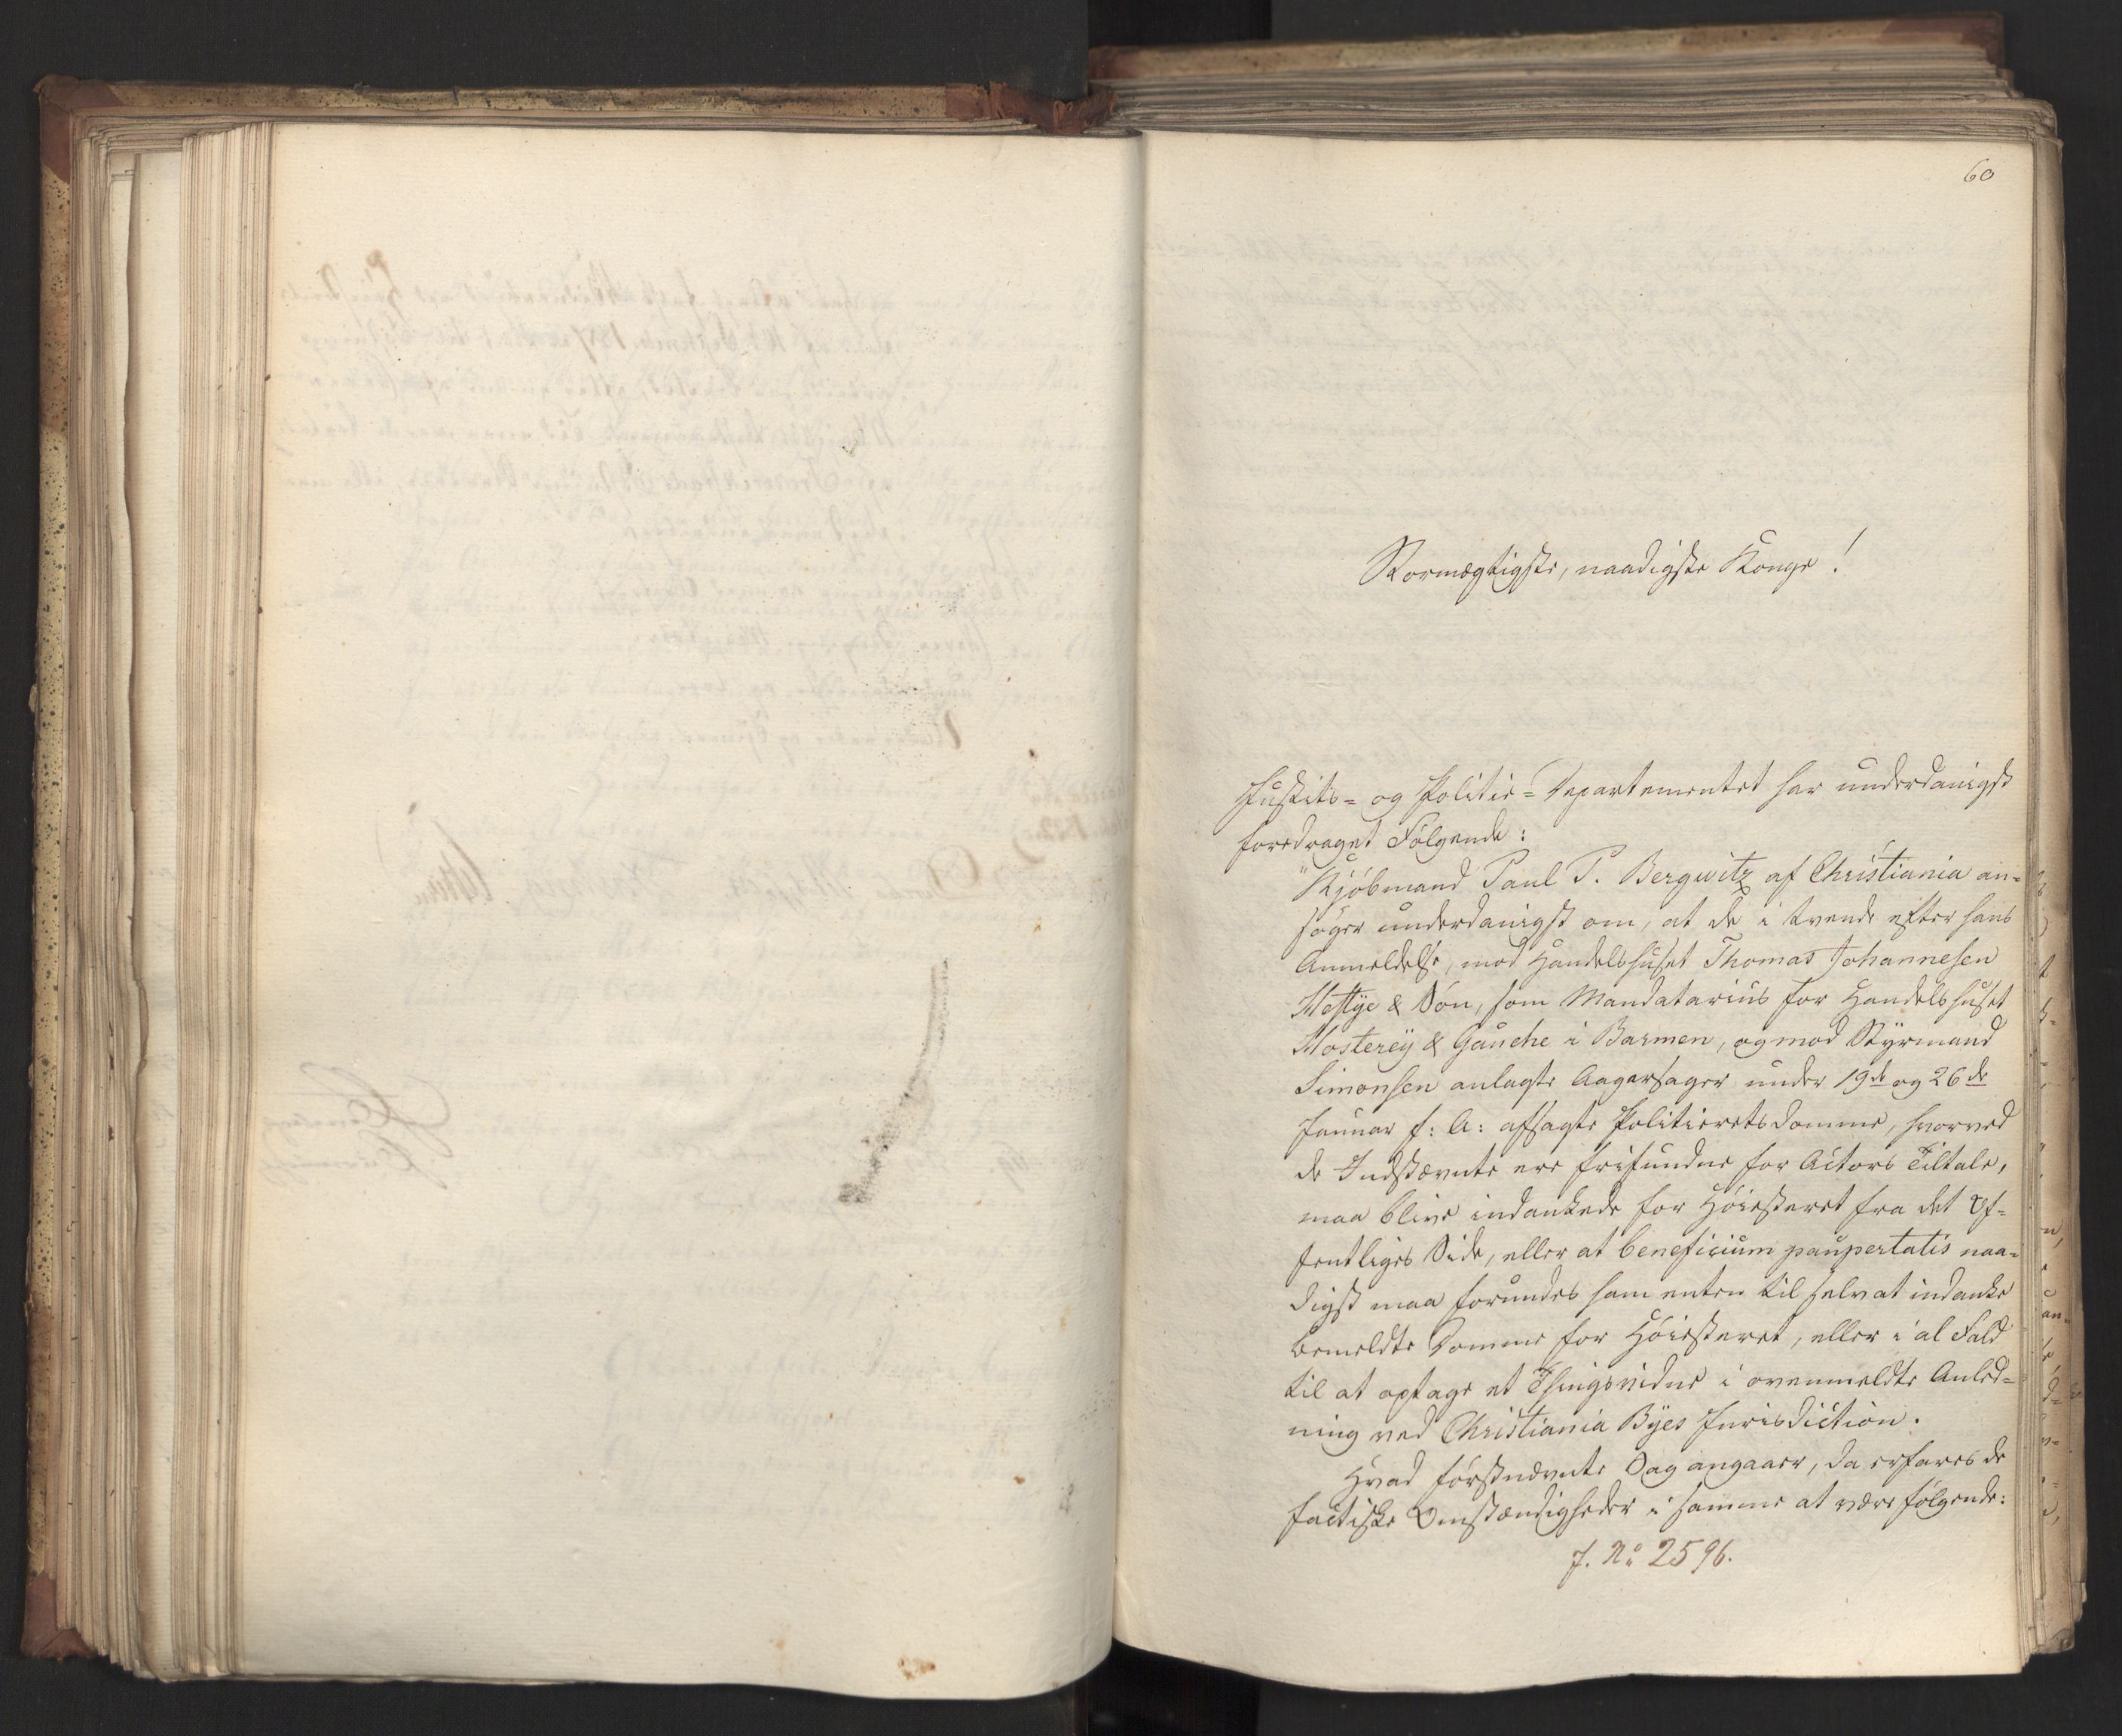 60
Stormægtigste, naadigste Konge!
Justits- og Politie-Departementet har underdanigst
foredraget Følgende:
"Kjöbmand Paul P. Bergwitz af Christiania an-
søger underdanigst om, at de i tvende efter hans
Anmeldelse, mod Handelshuset Thomas Johannesen
Heftye & Søn, som Mandatarius for Handelshuset
Mosterey & Gauche i Barmen, og mod Styrmand
Simonsen anlagte Aagersager under 19de og 26de
Januar f: A: afsagte Politieretsdomme, hvorved
de Indstævnte ere frifundne for Actors Tiltale,
maa blive indankede for Høiesteret fra det Of-
fentliges Side, eller at beneficium paupertatis naa-
digst maa forundes ham enten til selv at indanke
bemeldte Domme for Høiesteret, eller i al Fald
til at optage et Thingsvidne i ovenmeldte Anled-
ning ved Christiania Byes Jurisdiction.
Hvad førstnævnte Sag angaaer, da erfares de
factiske Omstændigheder i samme at være følgende:
J. No 2596.